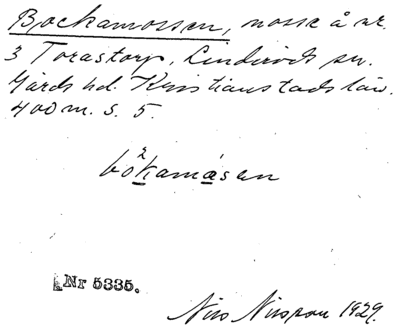 Bockamossen, mosse å nr.
3 Torastorp, Linderöds sn.
Gärds hd. Kristianstads län.
400 m. S. 5.
bökamåsen
Nr 5335.
Nils Nilsson 1929.